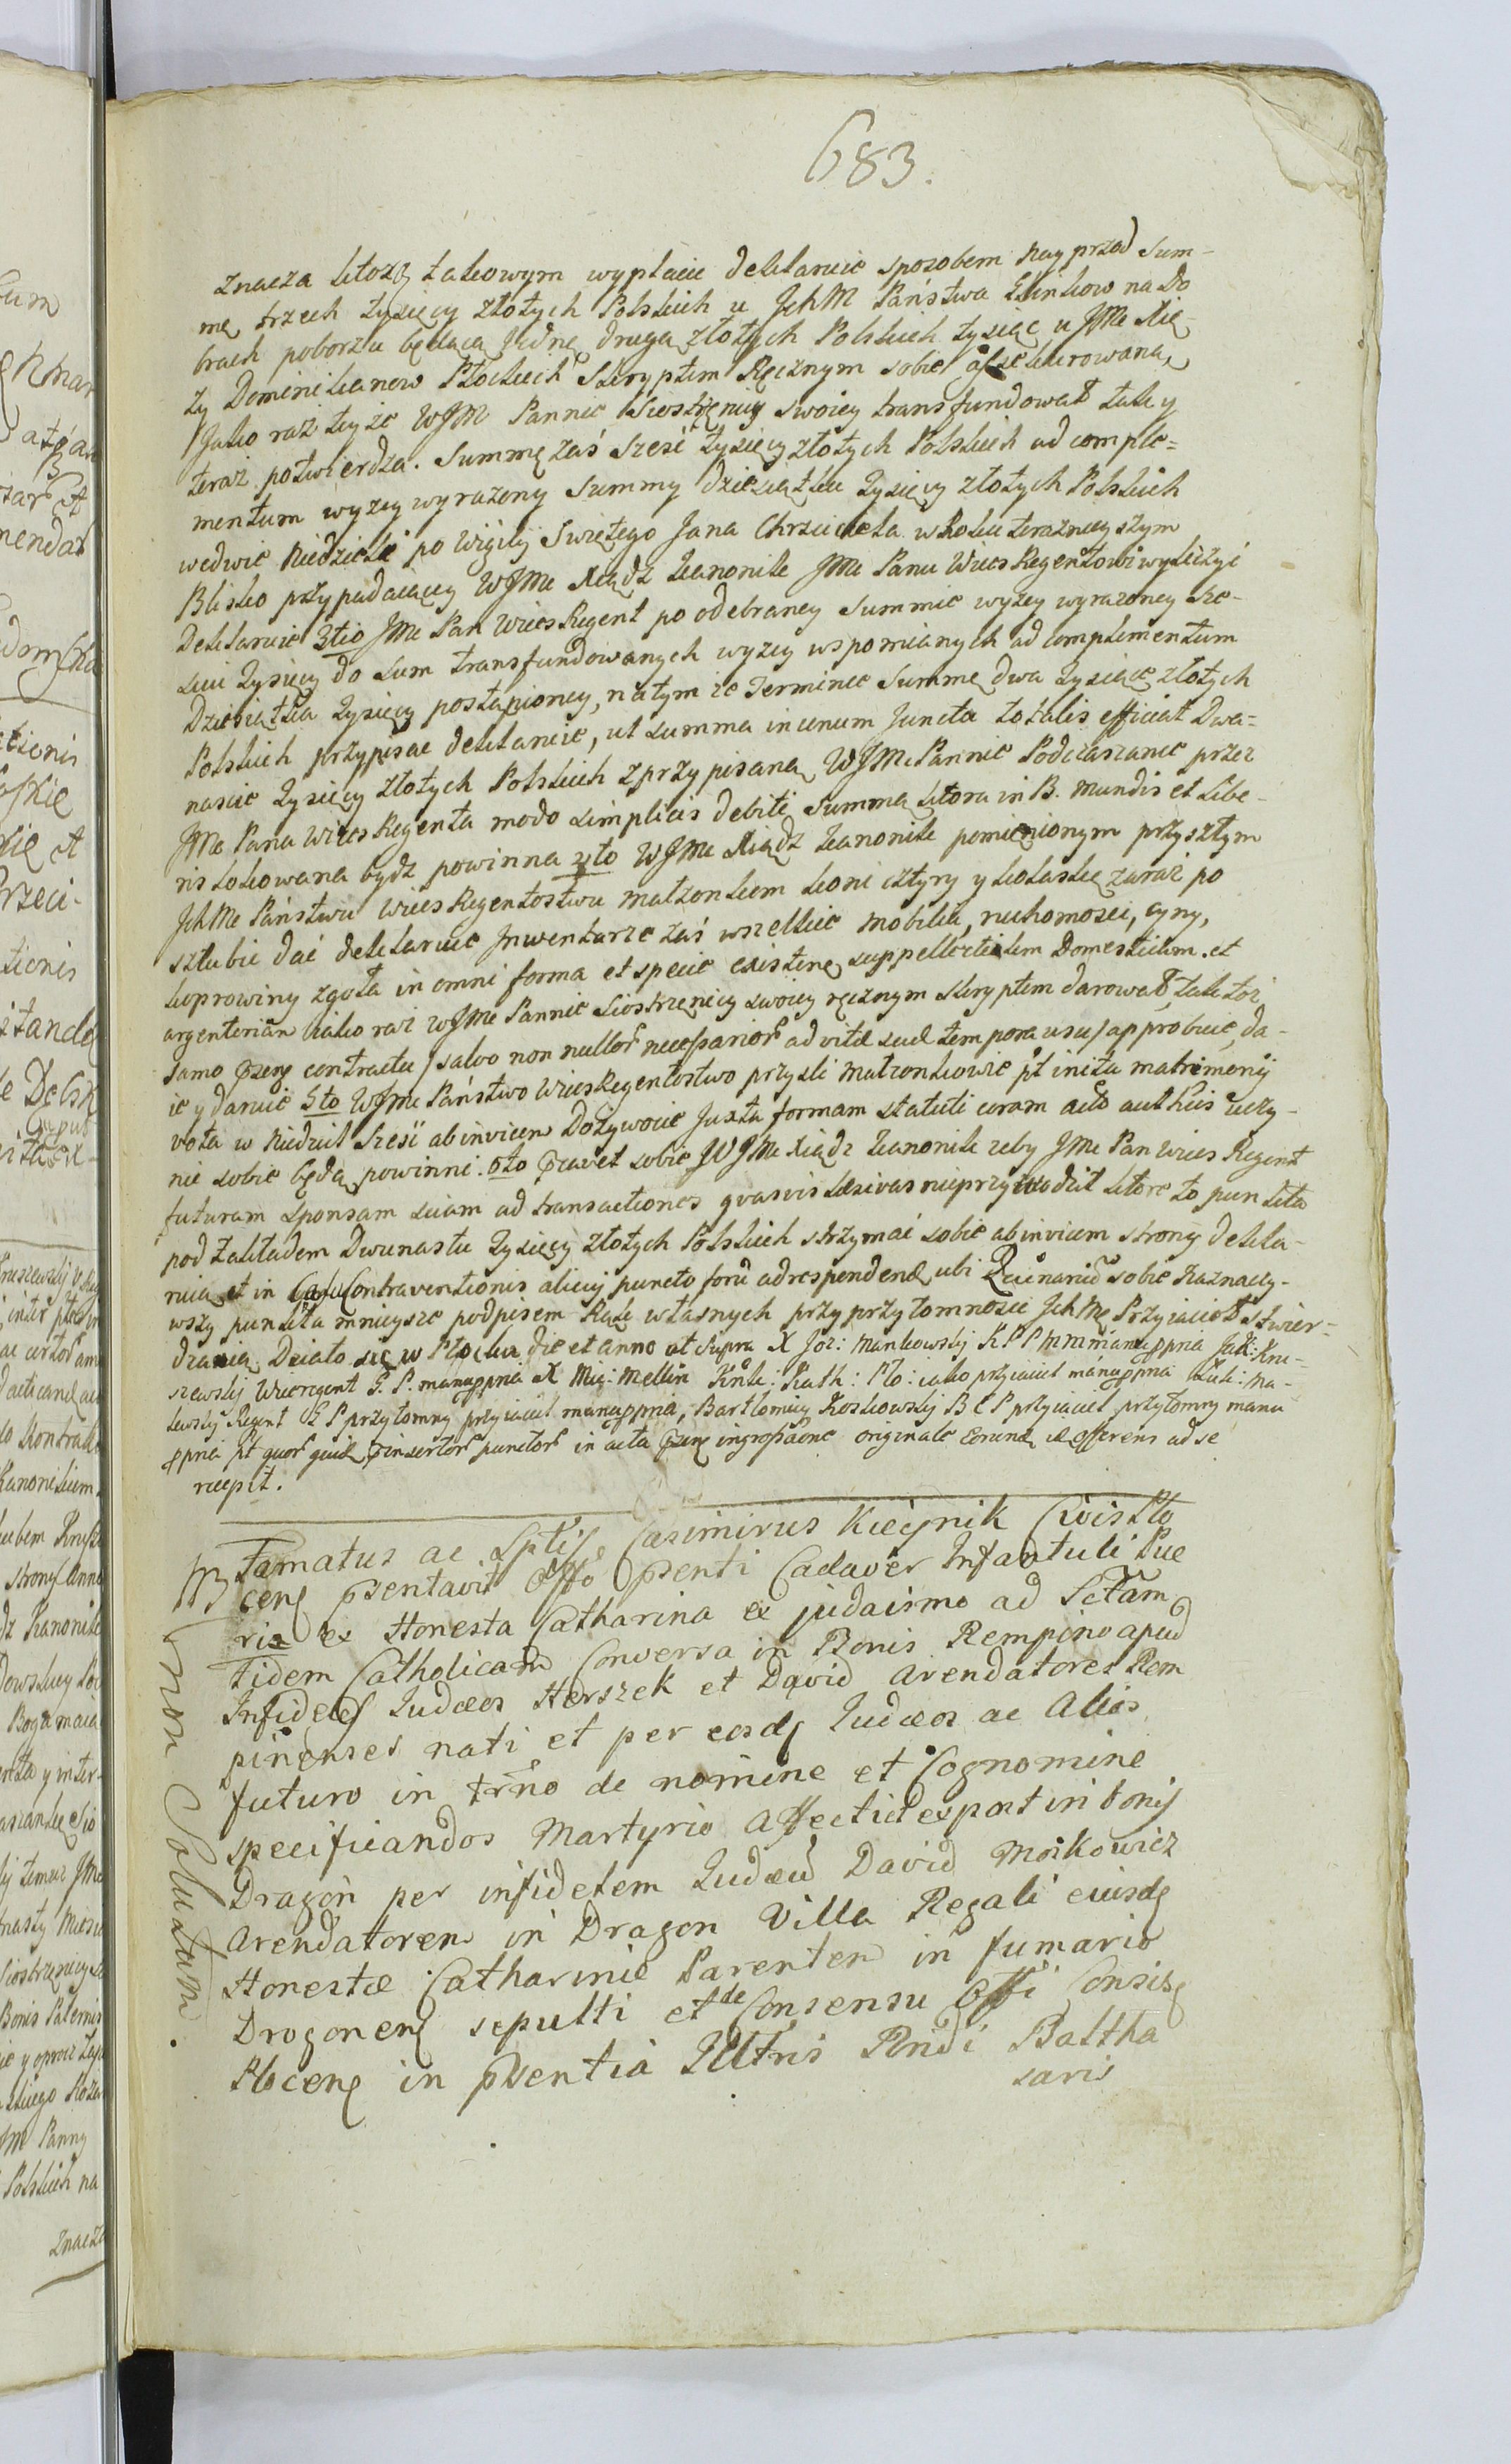 683.
znacza ktorą takowym wypłacic deklaruie sposobem nayprzod Sum-
mę trzech tysięcy złotych Polskich u JchM Państwa na Do
brach poborzu będącą Jednę drugą złotych Polskich tysiąc u JMc Xię-
ży Dominikanow Płockich Skryptem Ręcznym sobie assekurowaną,
Jako raz teyże WJM Pannie Siestrzenicy swoiey transfundował tak y
teraz potwierdza. Summę zaś sześć tysięcy złotych Polskich ad comple-
mentum wyzey wyrazony Summy dziesiątku tysięcy złotych Polskich
wedwie Niedzieli po Wigilij Swiętego Jana Chrzciciela w Roku teraznieyszym
Blisko przypadaiącey WJMc Xiądz kanonik JMc Panu WicesRegentowi wyliczyć
Deklaruie 3tio JMc Pan WicesRegent po odebraney Summie wyzey wyrazoney sze-
sciu tysięcy do sum transfundowanych wyzey wspomianych ad complementum
Dziesiątka tysięcy postąpioney, natym ze Terminie Summę dwa tysiące złotych
Polskich przypisac deklaruie, ut summa in unum Juncta totalis efficiat Dwa-
nascie tysięcy złotych Polskich zprzypisaną WJMc Pannie Podczaszance przez
JMc Pana WicesRegenta modo simplicis debiti Summą ktora in B. mundis et Libe-
ris lokowana bydz powinna 4to WJMc Xiądz kanonik pomienionym przyszłym
JchMc Państwu WicesRegentostwu małzonkom koni cztyry y kolaskę zaraz po
szlubie dać deklaruie Jnwentarze zaś wszelkie mobilia, ruchomosci, cyny,
koprowiny zgoła in omni forma et specie existenę suppellectilem Domesticam et
argenteriam iako raz WJMc Pannie Siostrzenicy swoiey ręcznym skryptem darował, tak toż
samo contractu salvo non nullor necessarior ad vitæ suæ tempora usu approbuie, da-
ie y daruie 5to WJMc Państwo WicesRegentostwo przyszli małzonkowie pt inita matrimonij
vota w Niedziel Sześć abinvicem Dożywocie Juxta formam statuti coram actis uczy-
nic sobie będą powinni. 6to cavet sobie WJMc Xiądz kanonik zeby JMc Pan Wices Regent
futuram sponsam suam ad transactiones quasvis læsivas nieprzywodził ktore to punkta
pod zakładem Dwunastu tysięcy złotych Polskich strzymać sobie abinvicem strony dekla-
ruią et in Casu Contraventionis alicuj puncto forũ ad respondenđ ubi sobie Naznaczy-
wszy punkta mnieysze podpisem Rąk własnych przy przytomnosci JchMę Przyiacioł stwier-
dzaią Działo się w Płocku die et anno ut supra X Joz: Mankowskj K P P mmmanuppria Jak: Kru-
szewskj Wiceregent G. P. manuppria X Mic: Mellin Kath: Pło: iako przyiaciel manuppria Łuk: Ma-
lewskj Regent G P przytomny przyiaciel manuppria, Bartłomiey Koskowskj B C P przyiaciel przytomny manu
ppria pt quor quid insertor punctor in acta ingrossaone originale eorund offerens ad se
recepit.
Famatus ac Casimirus Kieynik Civis Pło
cenę pñtavit Offo pñti Cadaver Infantuli Pue
ris ex Honesta Catharina ex judaismo ad Sctam
Fidem Catholicam Conversa in Bonis Rempino apud
Infideles Judæos Herszek et David Arendatores Rem
pinenses nati et per eosdę Judæos ac Alios
futuro in trño de nomine et Cognomine
specificandos Martyrio Affecti et expost in bonis
Dragon per infidelem Judæũ David Moskowicz
Arendatorem in Dragon Villa Regali eiusdę
Honestæ Catharinæ Parentem in fumario
Drogonenę sepulti et de Consensu Offi Consisę
Plocenę in pñtia Illtris Rndi Baltha
saris
non Solutum.